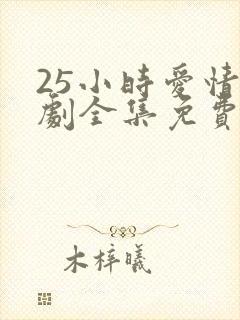 25小時愛情
劇全集免費
木梓曦